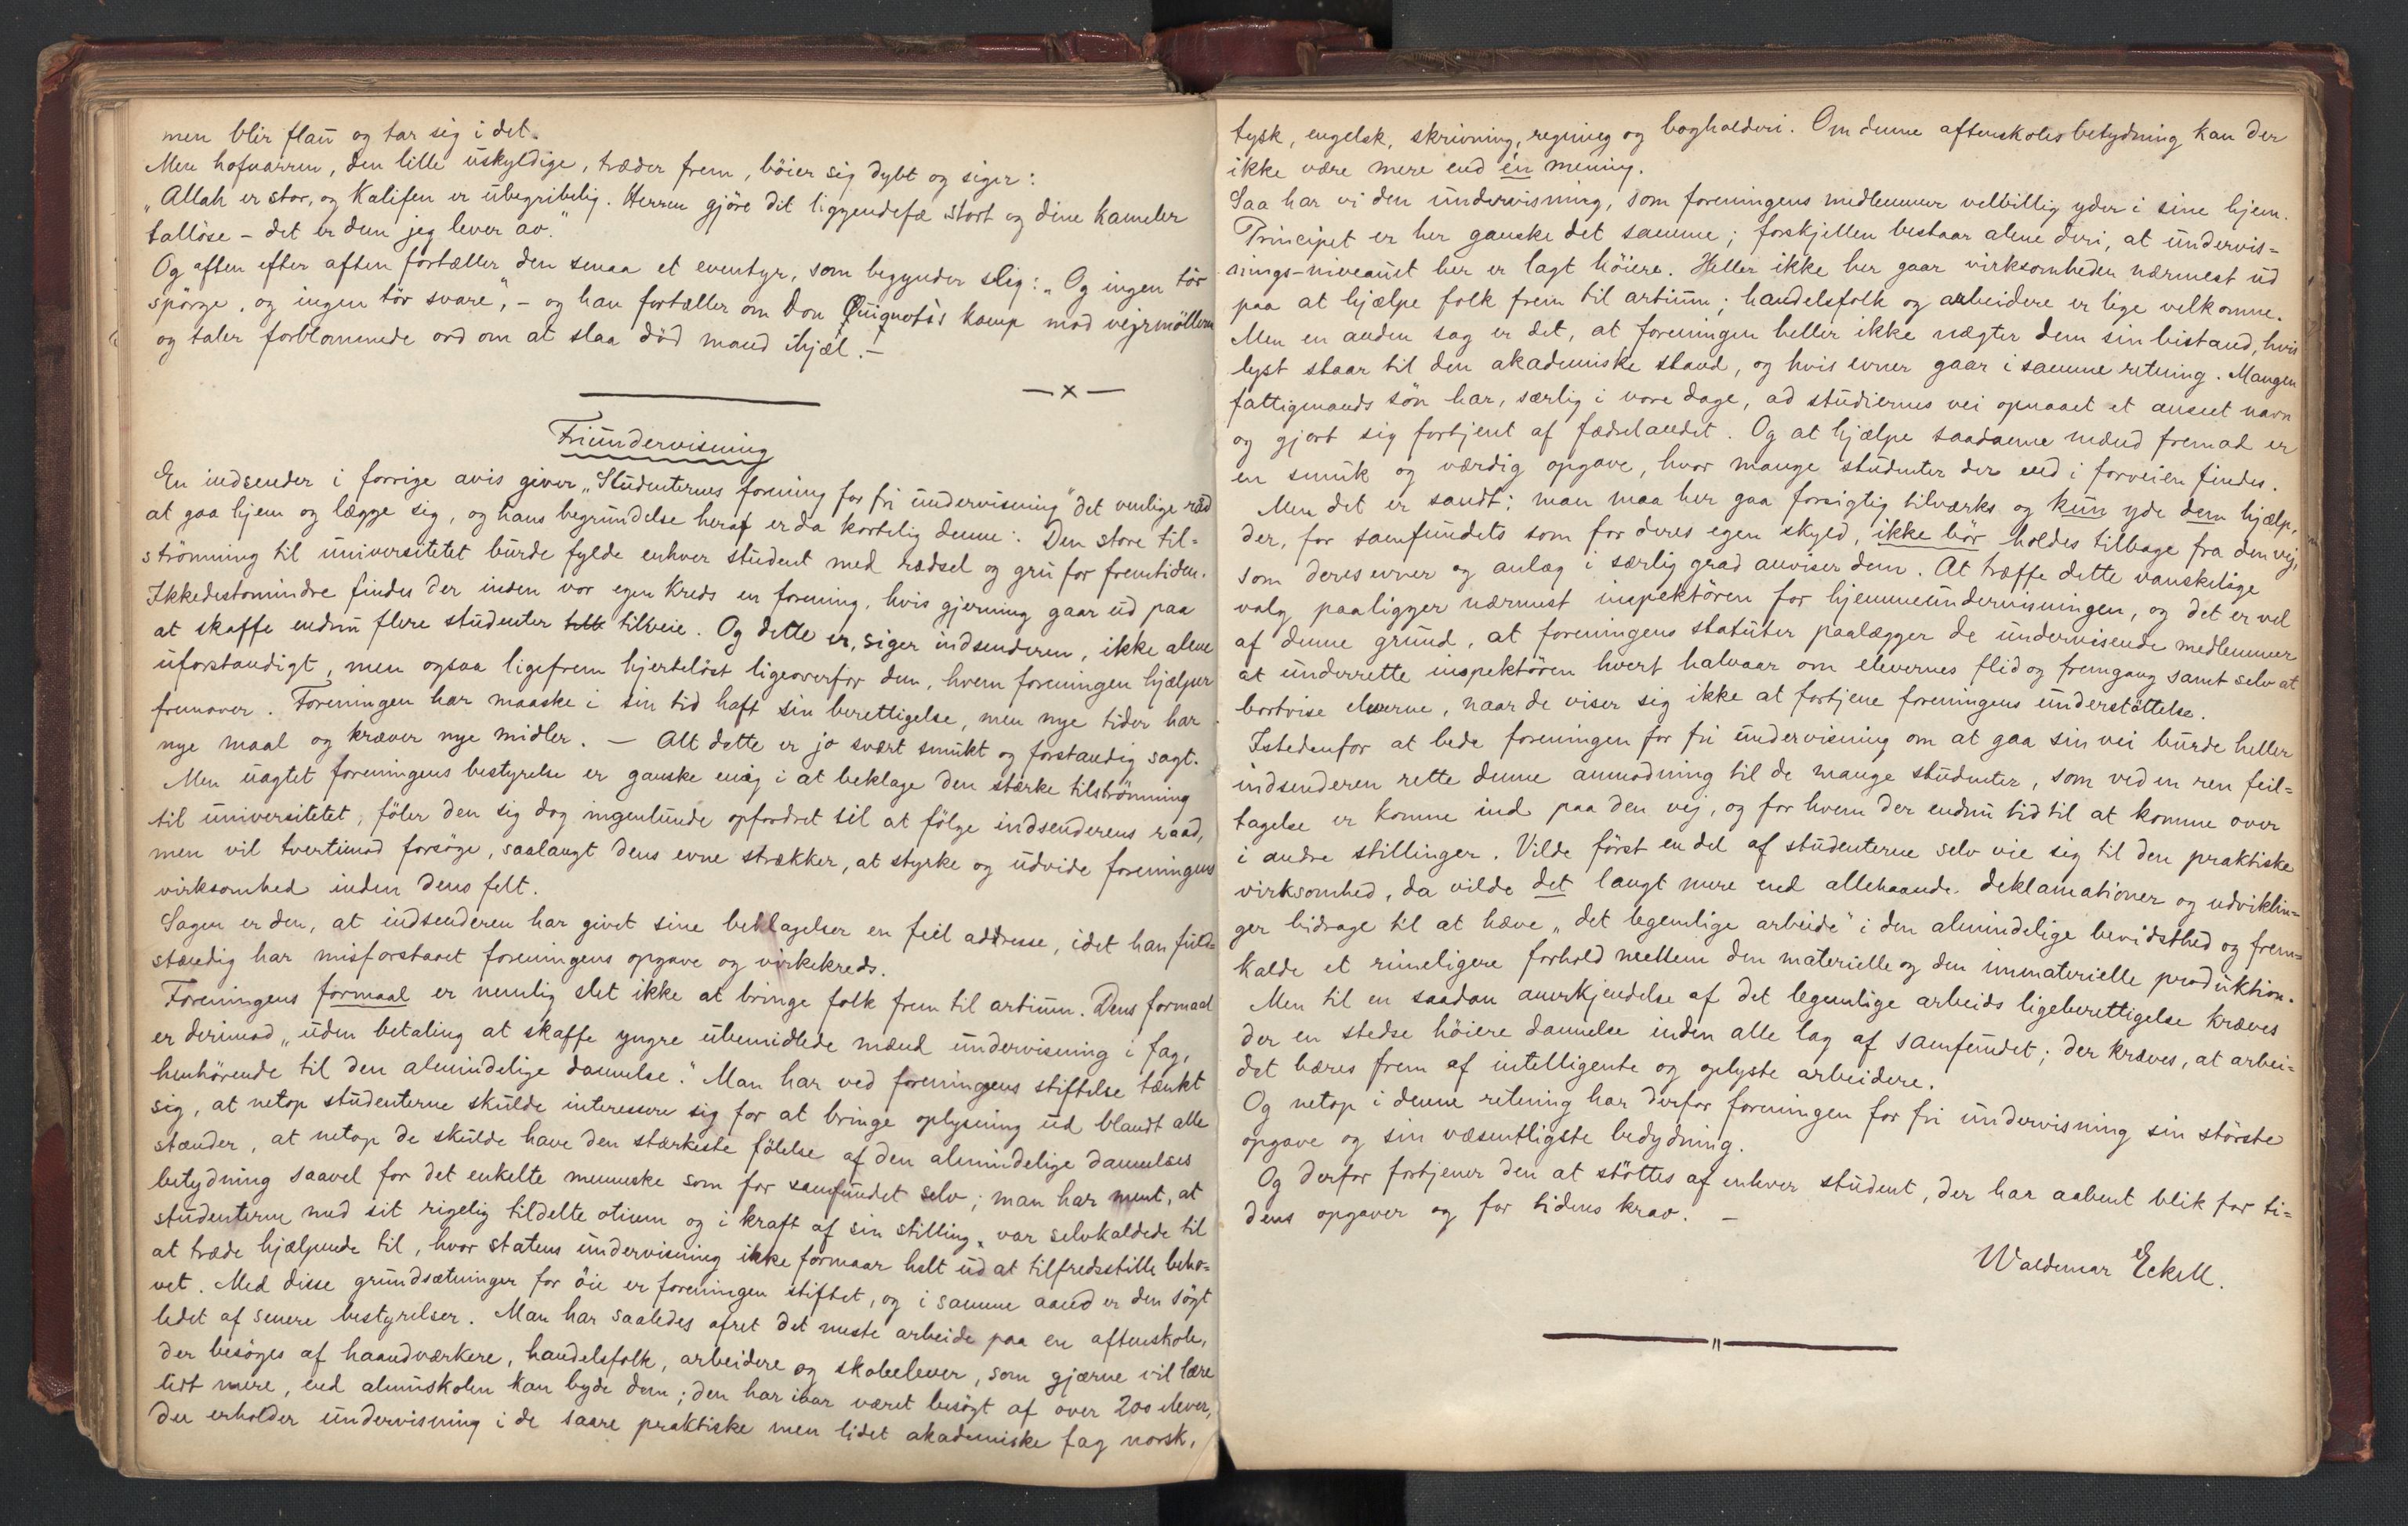 men blir flau og tar sig i det.
Men hofnarren, den lille uskyldige, træder frem, böier sig dybt og siger:
„Allah er stor, og Kalifen er ubegribelig. Herren gjöre dit liggendefæ stort og dine kameler
tallöse – det er dem jeg lever av."
Og aften efter aften fortæller den smaa et eventyr, som begynder slig: „Og ingen tör
spörge, og ingen tör svare", – og han fortæller om Don Quiqvotes kamp mod vejrmöllerne
og taler forblommede ord om at slaa död mand ihjæl. –
– x –
Friundervisning
En indsender i forrige avis giver „Studenternes forening for fri undervisning" det venlige råd
at gaa hjem og lægge sig, og hans begrundelse heraf er da kortelig denne: Den store til=
strömning til universitetet burde fylde enhver student med rædsel og gru for fremtiden.
Ikkedestomindre findes der inden vor egen kreds en forening, hvis gjerning gaar ud paa
at skaffe endnu flere studenter tilveie. Og dette er, siger indsenderen, ikke alene
uforstandigt, men ogsaa ligefrem hjertelöst ligeoverfor dem, hvem foreningen hjælper
fremover. Foreningen har maaske i sin tid haft sin berettigelse, men nye tider har
nye maal og kræver nye midler. – Alt dette er jo svært smukt og forstandig sagt.
Men uagtet foreningens bestyrelse er ganske enig i at beklage den stærke tilströmning
til universitetet, föler den sig dog ingenlunde opfordret til at fölge indsenderens raad,
men vil tvertimod forsöge, saalangt dens evne strækker, at styrke og udvide foreningens
virksomhed inden dens felt.
Sagen er den, at indsenderen har givet sine beklagelser en feil addresse, idet han fuld=
stændig har misforstaaet foreningens opgave og virkekreds.
Foreningens formaal er nemlig slet ikke at bringe folk frem til artium. Dens formaal
er derimod „uden betaling at skaffe yngre ubemidlede mænd undervisning i fag,
henhörende til den almindelige dannelse." Man har ved foreningens stiftelse tænkt
sig, at netop studenterne skulde interessere sig for at bringe oplysning ud blandt alle
stænder, at netop de skulde have den stærkeste fölelse af den almindelige dannelses
betydning saavel for det enkelte menneske som for samfundet selv; man har ment, at
studenterne med sit rigelig tildelte otium og i kraft af sin stilling, var selvkaldede til
at træde hjælpende til, hvor statens undervisning ikke formaar helt ud at tilfredsstille beho=
vet. Med disse grundsætninger for öie er foreningen stiftet, og i samme aand er den sögt
ledet af senere bestyrelser. Man har saaledes ofret det meste arbeide paa en aftenskole,
der besöges af haandværkere, handelsfolk, arbeidere og skoleelever, som gjærne vil lære
lidt mere, end almuskolen kan byde dem; den har iaar været besögt af over 200 elever,
der erholder undervisning i de saare praktiske men lidet akademiske fag norsk,
tysk, engelsk, skrivning, regning og bogholderi. Om denne aftenskoles betydning kan der
ikke være mere end én mening.
Saa har vi den undervisning, som foreningens medlemmer velvillig yder i sine hjem.
Principet er her ganske det samme; forskjellen bestaar alene deri, at undervis=
nings-niveauet her er lagt höiere. Heller ikke her gaar virksomheden nærmest ud
paa at hjælpe folk frem til artium; handelsfolk og arbeidere er lige velkomne.
Men en anden sag er det, at foreningen heller ikke nægter dem sin bistand, hvis
lyst staar til den akademiske stand, og hvis evner gaar i samme retning. Mangen
fattigmands sön har, særlig i vore dage, ad studiernes vei opnaaet et anseet navn
og gjort sig fortjent af fædrelandet. Og at hjælpe saadanne mænd fremad er
en smuk og værdig opgave, hvor mange studenter der end i forveien findes.
Men det er sandt: man maa her gaa forsigtig tilværks og kun yde dem hjælp,
der, for samfundets som for deres egen skyld, ikke bör holdes tilbage fra den vej,
som deres evner og anlæg i særlig grad anviser dem. At træffe dette vanskelige
valg paaligger nærmest inspektören for hjemmeundervisningen, og det er vel
af denne grund, at foreningens statuter paalægger de undervisende medlemmer
at underrette inspektören hvert halvaar om elevernes flid og fremgang samt selv at
bortvise eleverne, naar de viser sig ikke at fortjene foreningens understöttelse.
Istedenfor at bede foreningen for fri undervisning om at gaa sin vei burde heller
indsenderen rette denne anmodning til de mange studenter, som ved en ren feil=
tagelse er komne ind paa den vej, og for hvem der endnu tid til at komme over
i andre stillinger. Vilde först en del af studenterne selv vie sig til den praktiske
virksomhed, da vilde det langt mere end allehaande deklamationer og udviklin=
ger bidrage til at hæve „det legemlige arbeide" i den almindelige bevidsthed og frem=
kalde et rimeligere forhold mellem den materielle og den immaterielle produktion.
Men til en saadan anerkjendelse af det legemlige arbeids ligeberettigelse kræves
der en stedse höiere dannelse inden alle lag af samfundet; der kræves, at arbei=
det bæres frem af intelligente og oplyste arbeidere.
Og netop i denne retning har derfor foreningen for fri undervisning sin störste
opgave og sin væsentligste bedydning.
Og derfor fortjener den at stöttes af enhver student, der har aabent blik for ti=
dens opgaver og for tidens krav. –
Waldemar Eckell.